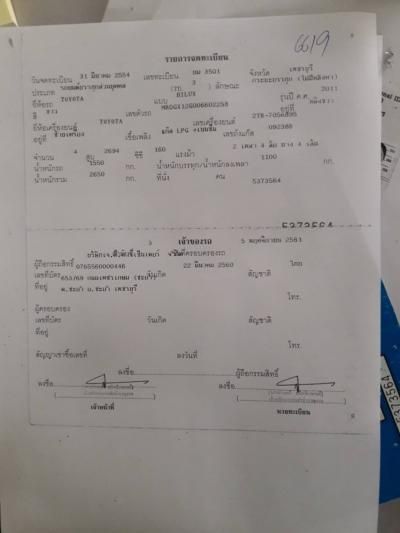 6619
รายการจดทะเบียน
วันจดทะเบียน 31 มีนาคม 2554 เลขทะเบียน บม 3501 จังหวัด เพชรบุรี
ประเภท รถยนต์บรรทุกส่วนบุคคล (รย. 3 ) ลักษณะ กระบะบรรทุก (ไม่มีหลังคา)
ยี่ห้อรถ TOYOTA แบบ HILUX รุ่นปี ค.ศ. 2011
สี ขาว เลขตัวรถ MR0GX12G006602258 อยู่ที่
ยี่ห้อเครื่องยนต์ TOYOTA เลขเครื่องยนต์ 2TR-7056895
อยู่ที่ ซ้ายเครื่อง เชื้อเพลิง แก๊ส LPG +เบนซิน เลขถังแก๊ส 092388
จำนวน 4 สูบ 2694 ซีซี 160 แรงม้า 2 เพลา 4 ล้อ ยาง 4 เส้น
น้ำหนักรถ 1550 กก. น้ำหนักบรรทุก/น้ำหนักลงเพลา 1100 กก.
น้ำหนักรวม 2650 กก. ที่นั่ง คน 5373564
5373564
3 เจ้าของรถ 5 พฤศจิกายน 2563
วันที่ครอบครองรถ
ผู้ถือกรรมสิทธิ์
เลขที่บัตร 0765560000446 วันเกิด 22 มีนาคม 2560 สัญชาติ ไทย
ที่อยู่
ต.ชะอำ อ.ชะอำ เพชรบุรี
โทร.
ผู้ครอบครอง
เลขที่บัตร วันเกิด สัญชาติ
ที่อยู่
โทร.
สัญญาเช่าซื้อเลขที่ ลงวันที่
ลงชื่อ ผู้ถือกรรมสิทธิ์
ลงชื่อ ลงชื่อ
เจ้าหน้าที่ นายทะเบียน
5373564